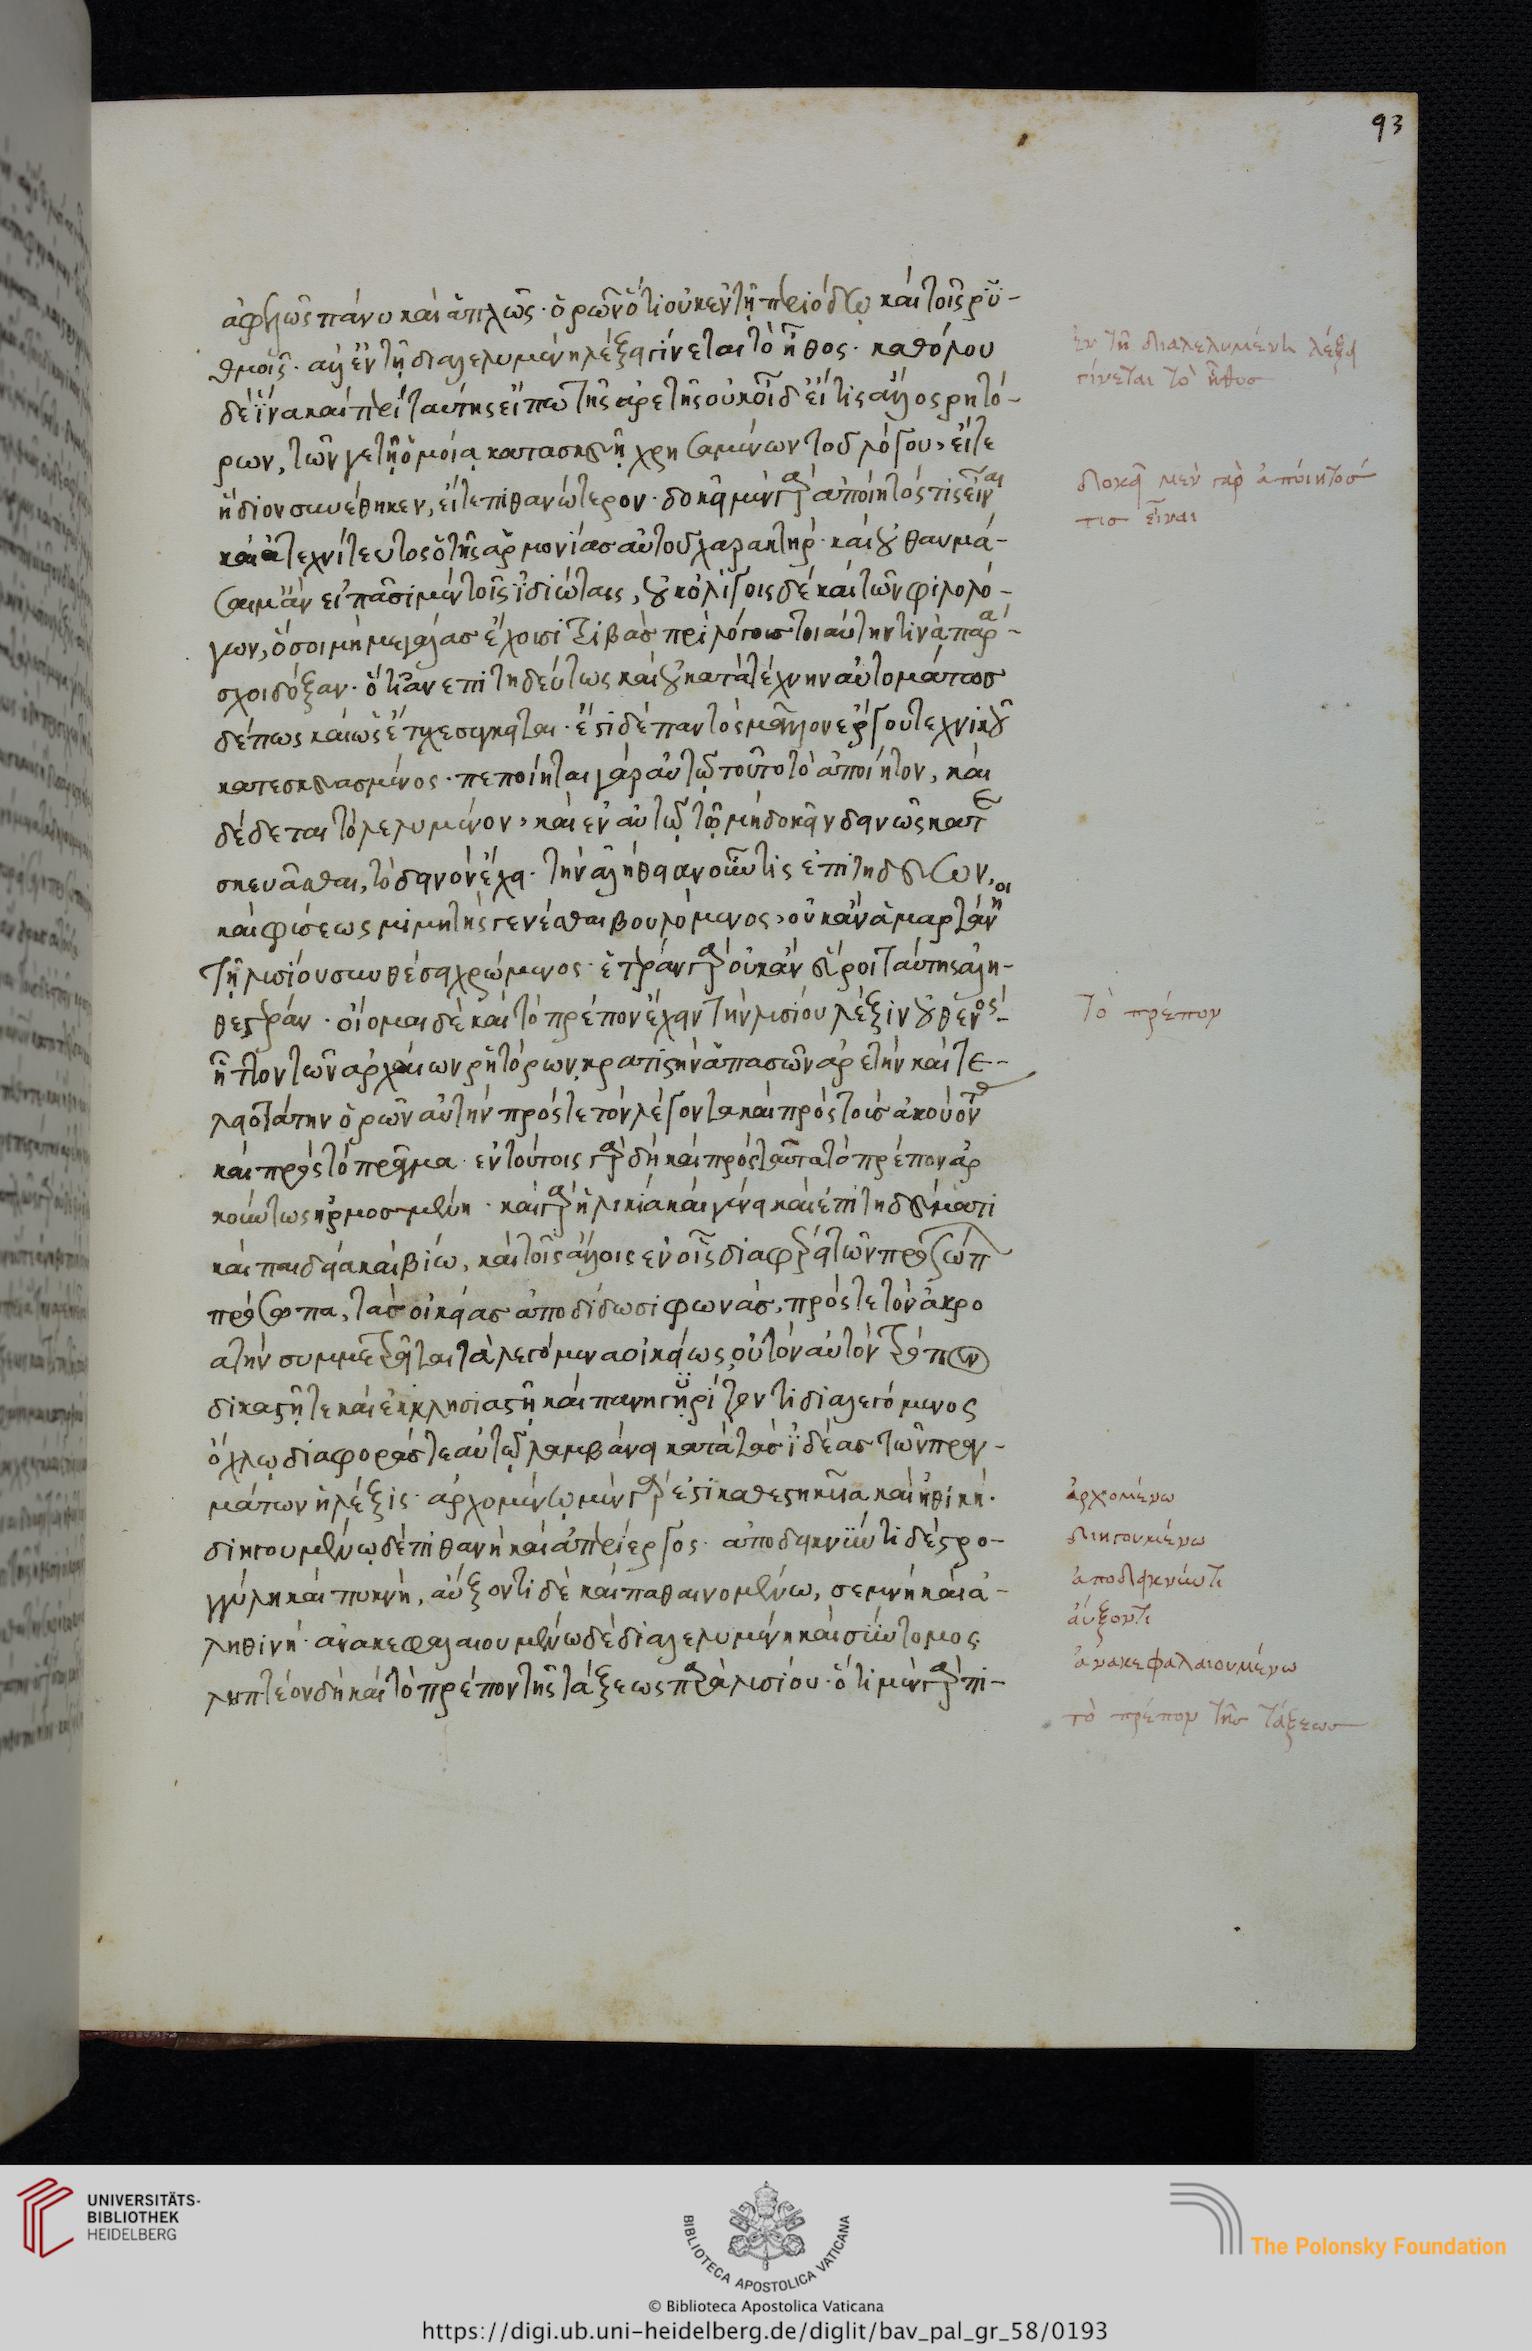 93
ἀφελῶς πάνυ καὶ ἁπλῶς· ὁρῶν ὅτι οὐκ ἐν τῇ περιόδῳ καὶ τοῖς ῥυ-
θμοῖς· ἀλλ' ἐν τῇ διαλελυμένῃ λέξει γίνεται τὸ ἦθος· καθόλου
δὲ ἵνα καὶ περὶ ταύτης εἴπω τῆς ἀρετῆς οὐκ οἶδ' εἴ τις ἄλλος ῥητό-
ρων, τῶν γε τῇ ὁμοίᾳ κατασκευῇ χρησαμένων τοῦ λόγου, εἴτε
ἥδιον συνέθηκεν, εἴτε πιθανώτερον· δοκεῖ μὲν γὰρ ἀποίητός τις εἶναι
καὶ ἀτεχνίτευτος ὁ τῆς ἁρμονίας αὐτοῦ χαρακτήρ· καὶ οὐ θαυμά-
σαιμ' ἂν εἰ πᾶσι μὲν τοῖς ἰδιώταις, οὐκ ὀλίγοις δὲ καὶ τῶν φιλολό-
γων, ὅσοι μὴ μεγάλας ἔχουσι τριβὰς περὶ λόγους τοιαύτην τινὰ παρά-
σχοι δόξαν· ὅτι ἀνεπιτηδεύτως καὶ οὐ κατὰ τέχνην αὐτομάτως
δέ πως καὶ ὡς ἔτυχε σύγκειται· ἔστι δὲ παντὸς μᾶλλον ἔργου τεχνικοῦ
κατεσκευασμένος· πεποίηται γὰρ αὐτῷ τοῦτο τὸ ἀποίητον, καὶ
δέδεται τὸ λελυμένον, καὶ ἐν αὐτῷ τῷ μὴ δοκεῖν δεινῶς κατε
σκευᾶσθαι, τὸ δεινὸν ἔχει· τὴν ἀλήθειαν οὖν τις ἐπιτηδεύων,
καὶ φύσεως μιμητὴς γενέσθαι βουλόμενος, οὐκ ἂν ἁμαρτάνοι
τῇ λυσίου συνθέσει χρώμενος· ἑτέραν γὰρ οὐκ ἂν εὕροι ταύτης ἀλη-
θεστέραν· οἴομαι δὲ καὶ τὸ πρέπον ἔχειν τὴν λυσίου λέξιν οὐθενός-
ἧττον τῶν ἀρχαίων ῥητόρων, κρατίστην ἁπασῶν ἀρετὴν καὶ τε-
λειοτάτην ὁρῶν αὐτὴν πρός τε τὸν λέγοντα καὶ πρὸς τοὺς ἀκούοντας
καὶ πρὸς τὸ πρᾶγμα· ἐν τούτοις γὰρ δὴ καὶ πρὸς ταῦτα τὸ πρέπον ἀρ
κούντως ἡρμοσμένη· καὶ γὰρ ἡλικίᾳ καὶ γένει καὶ ἐπιτηδεύματι
καὶ παιδείᾳ καὶ βίῳ, καὶ τοῖς ἄλλοις ἐν οἷς διαφέρει τῶν προσώπων
πρόσωπα, τὰς οἰκείας ἀποδίδωσι φωνάς, πρός τε τὸν ἀκρο
ατὴν συμμετρεῖται τὰ λεγόμενα οἰκείως, οὐ τὸν αὐτὸν τρόπον
δικαστῇ τε καὶ ἐκκλησιαστῇ καὶ πανηγυρίζοντι διαλεγόμενος
ὄχλῳ διαφοράς τε αὐτῷ λαμβάνει κατὰ τὰς ἰδέας τῶν πραγ-
μάτων ἡ λέξις· ἀρχομένῳ μὲν γάρ ἐστι καθεστηκυῖα καὶ ἠθική·
διηγουμένῳ δὲ πιθανὴ καὶ ἀπερίεργος· ἀποδεικνύντι δὲ στρο-
γγύλη καὶ πυκνή, αὔξοντι δὲ καὶ παθαινομένῳ, σεμνὴ καὶ ἀ-
ληθινή· ἀνακεφαλαιουμένῳ δὲ διαλελυμένη καὶ σύντομος
ληπτέον δὴ καὶ τὸ πρέπον τῆς τάξεως παρὰ λυσίου· ὅτι μὲν γὰρ ἐπι-
ἐν τῇ διαλελυμένῃ λέξει
γίνεται τὸ ἦθος
δοκεῖ μὲν γὰρ ἀποίητός
τις εἶναι
τὸ πρέπον
ἀρχομένω
διηγουμένω
ἀποδεικνύντι
αὔξοντι
ἀνακεφαλαιουμένω
τὸ πρέπον τῆς τάξεως
UNIVERSITÄTS-
BIBLIOTHEK
HEIDELBERG
BIBLIOTECA APOSTOLICA VATICANA
The Polonsky Foundation
© Biblioteca Apostolica Vaticana
https://digi.ub.uni-heidelberg.de/diglit/bav_pal_gr_58/0193